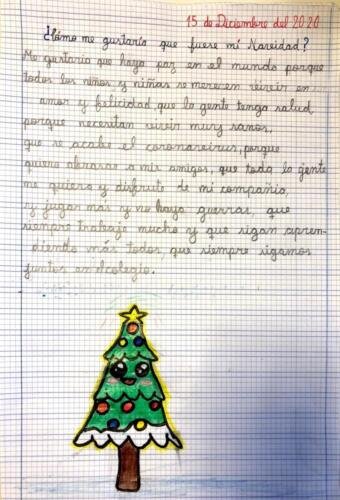 15 de Diciembre del 2020
¿Cómo me gustaría que fuese mi Navidad?
Me gustaría que haya paz en el mundo porque
todos los niños y niñas se merecen vivir en
amor y felicidad, que la gente tenga salud
porque necesitan vivir muy sanos,
que se acabe el coronavirus, porque
quiero abrazar a mis amigos, que toda la gente
me quiera y disfrute de mi compañía,
y jugar más y no haya guerras, que
siempre trabaje mucho y que sigan apren-
diendo más todos, que siempre sigamos
juntos en el colegio.